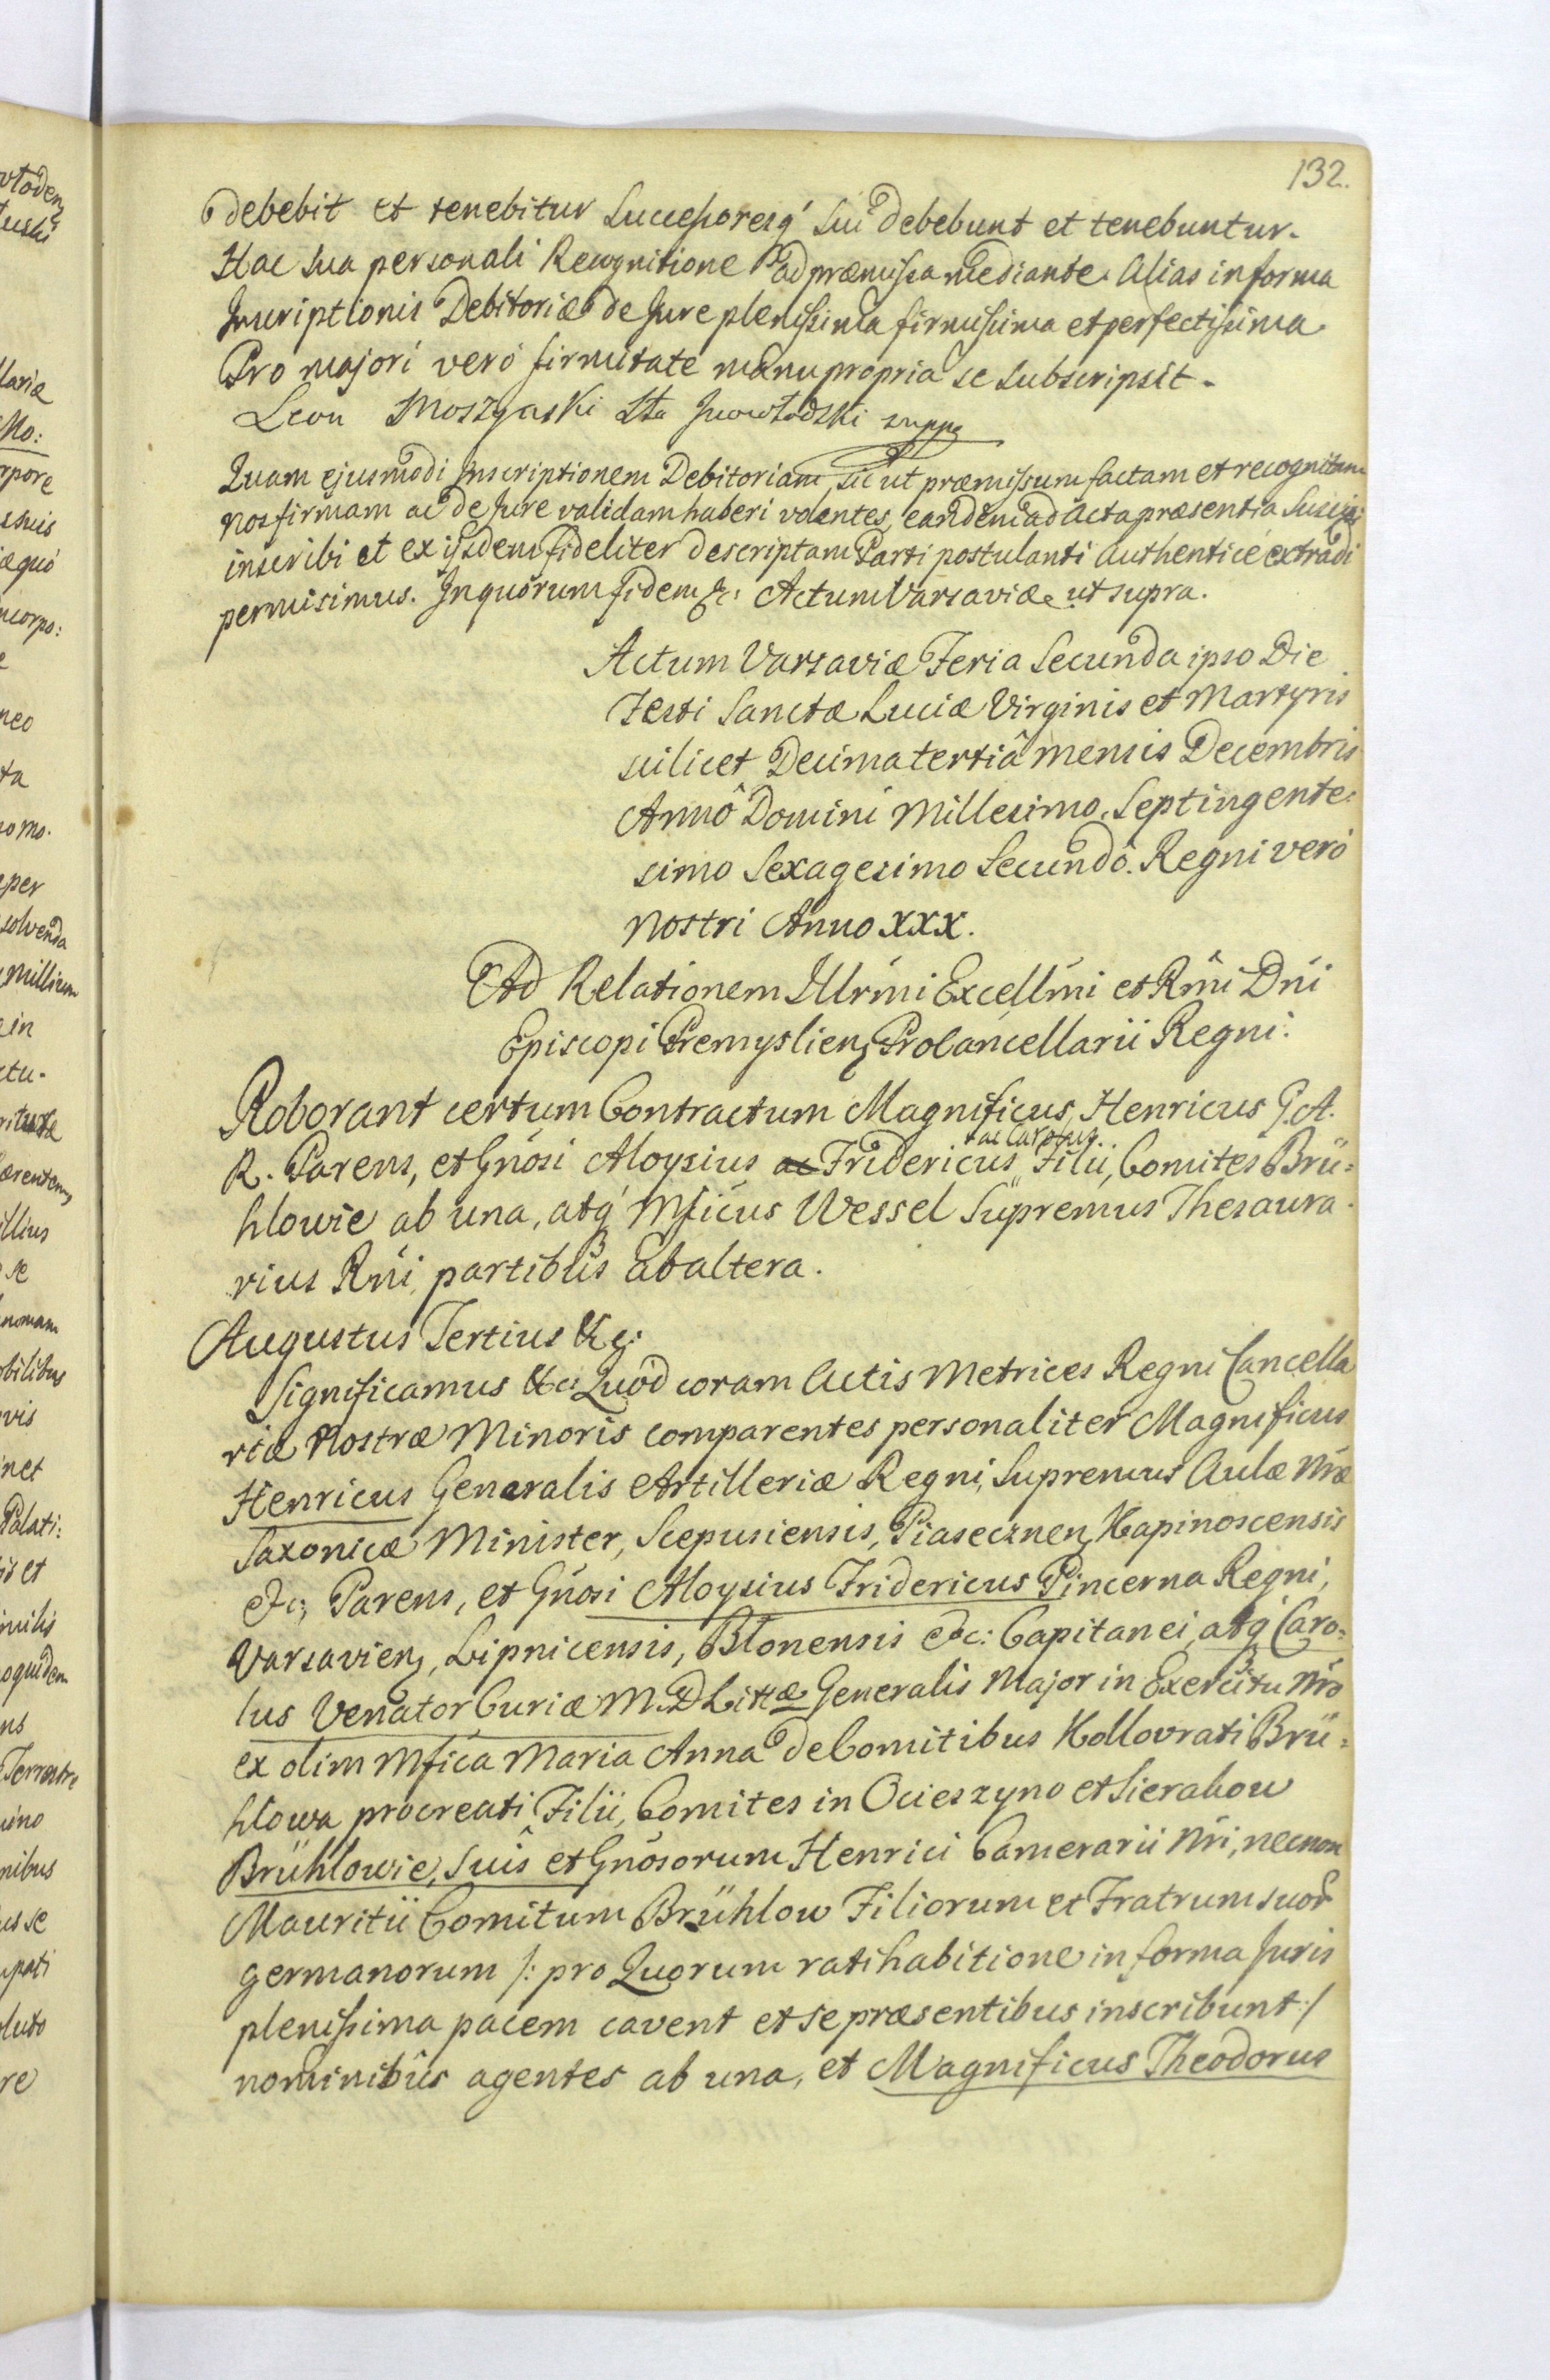 132.
debebit et tenebitur Successoresq' sui debebunt et tenebuntur.
Hac sua personali Recognitione ad præmissa mediante. Alias in forma
Inscriptionis Debitoriæ de Jure plenissima firmissima et perfectissima
Pro majori veró firmitate manu propria se subscripsit.
Leon Moszynski Sta Inowłodzki mppa
Quam ejusmodi Inscriptionem Debitoriam, sic ut præmissum factam et recognitam
nos firmam ac de Jure validam haberi volentes, eandem ad Acta præsentia Suscipi
inscribi et ex ijsdem fideliter descriptam Parti postulanti Authenticé extradi
permisimus. In quorum fidem &c: Actum Varsaviæ ut supra.
Actum Varsaviæ Feria Secunda ipso Die
Festi Sanctæ Luciæ Virginis et Martyris
scilicet Decima tertiâ mensis Decembris
Annô Domini Millesimo, Septingente:
simo Sexagesimo Secundô. Regni veró
nostri Anno XXX.
Ad Relationem Illrmi Excellmi et Rmi Dni
Episcopi Premyslien, Procancellarii Regni.
Roborant certum Contractum Magnificus Henricus G. A.
R. Parens, et Gnosi Aloysius ac Fridericus ac Carolus Filii, Comites Brü=
hlowie ab una, atq' Mficus Wessel Supremus Thesaura
rius Rni, partibus ab altera.
Augustus Tertius &c:
Significamus &c: Quod coram Actis Metrices Regni Cancella
riæ Nostræ Minoris comparentes personaliter Magnificus
Henricus Generalis Artilleriæ Regni, Supremus Aulæ Nræ
Saxonicæ Minister, Scepusiensis, Piasecznen, Kapinoscensis
&c:, Parens, et Gnosi Aloysius Fridericus Pincerna Regni,
Varsavien, Lipnicensis, Błonensis &c: Capitanei, atq' Caro=
lus Venator Curiæ M. D. Littæ Generalis Major in Exercitu Nro
ex olim Mfica Maria Anna de Comitibus Kollovrati Brü=
hlowa procreati Filii, Comites in Ocieszyno et Sierakow
Brühlowie, suis et Gnosorum Henrici Camerarii Nri, necnon
Mauritii Comitum Brühlow Filiorum et Fratrum suor
germanorum /: pro Quorum ratihabitione in forma Juris
plenissima pacem cavent et se præsentibus inscribunt :/
nominibûs agentes ab una, et Magnificus Theodorus